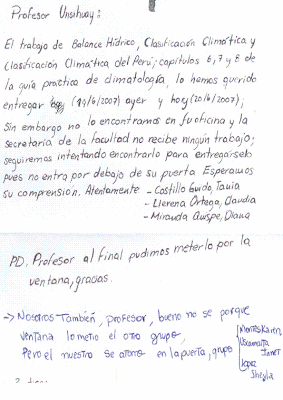 Profesor Unsihuay:
El trabajo de Balance Hídrico, Clasificación Climática y
Clasificación Climática del Perú; capítulos 6, 7 y 8 de
la guía práctica de climatología, lo hemos querido
entregar (19/6/2007) ayer y hoy (20/6/2007);
Sin embargo no lo encontramos en su oficina y la
secretaria de la facultad no recibe ningún trabajo;
seguiremos intentando encontrarlo para entregárselo
pues no entra por debajo de su puerta. Esperamos
su comprensión. Atentamente - Castillo Guido, Tania
- Llerena Ortega, Claudia
- Miranda Quispe, Diana
PD. Profesor al final pudimos meterlo por la
ventana, gracias.
→ Nosotros También, profesor, bueno no se porque
ventana lo metio el otro grupo,
Pero el nuestro se atoro en la puerta, grupo
Montes Karen,
Janet
Lopez
Sheyla